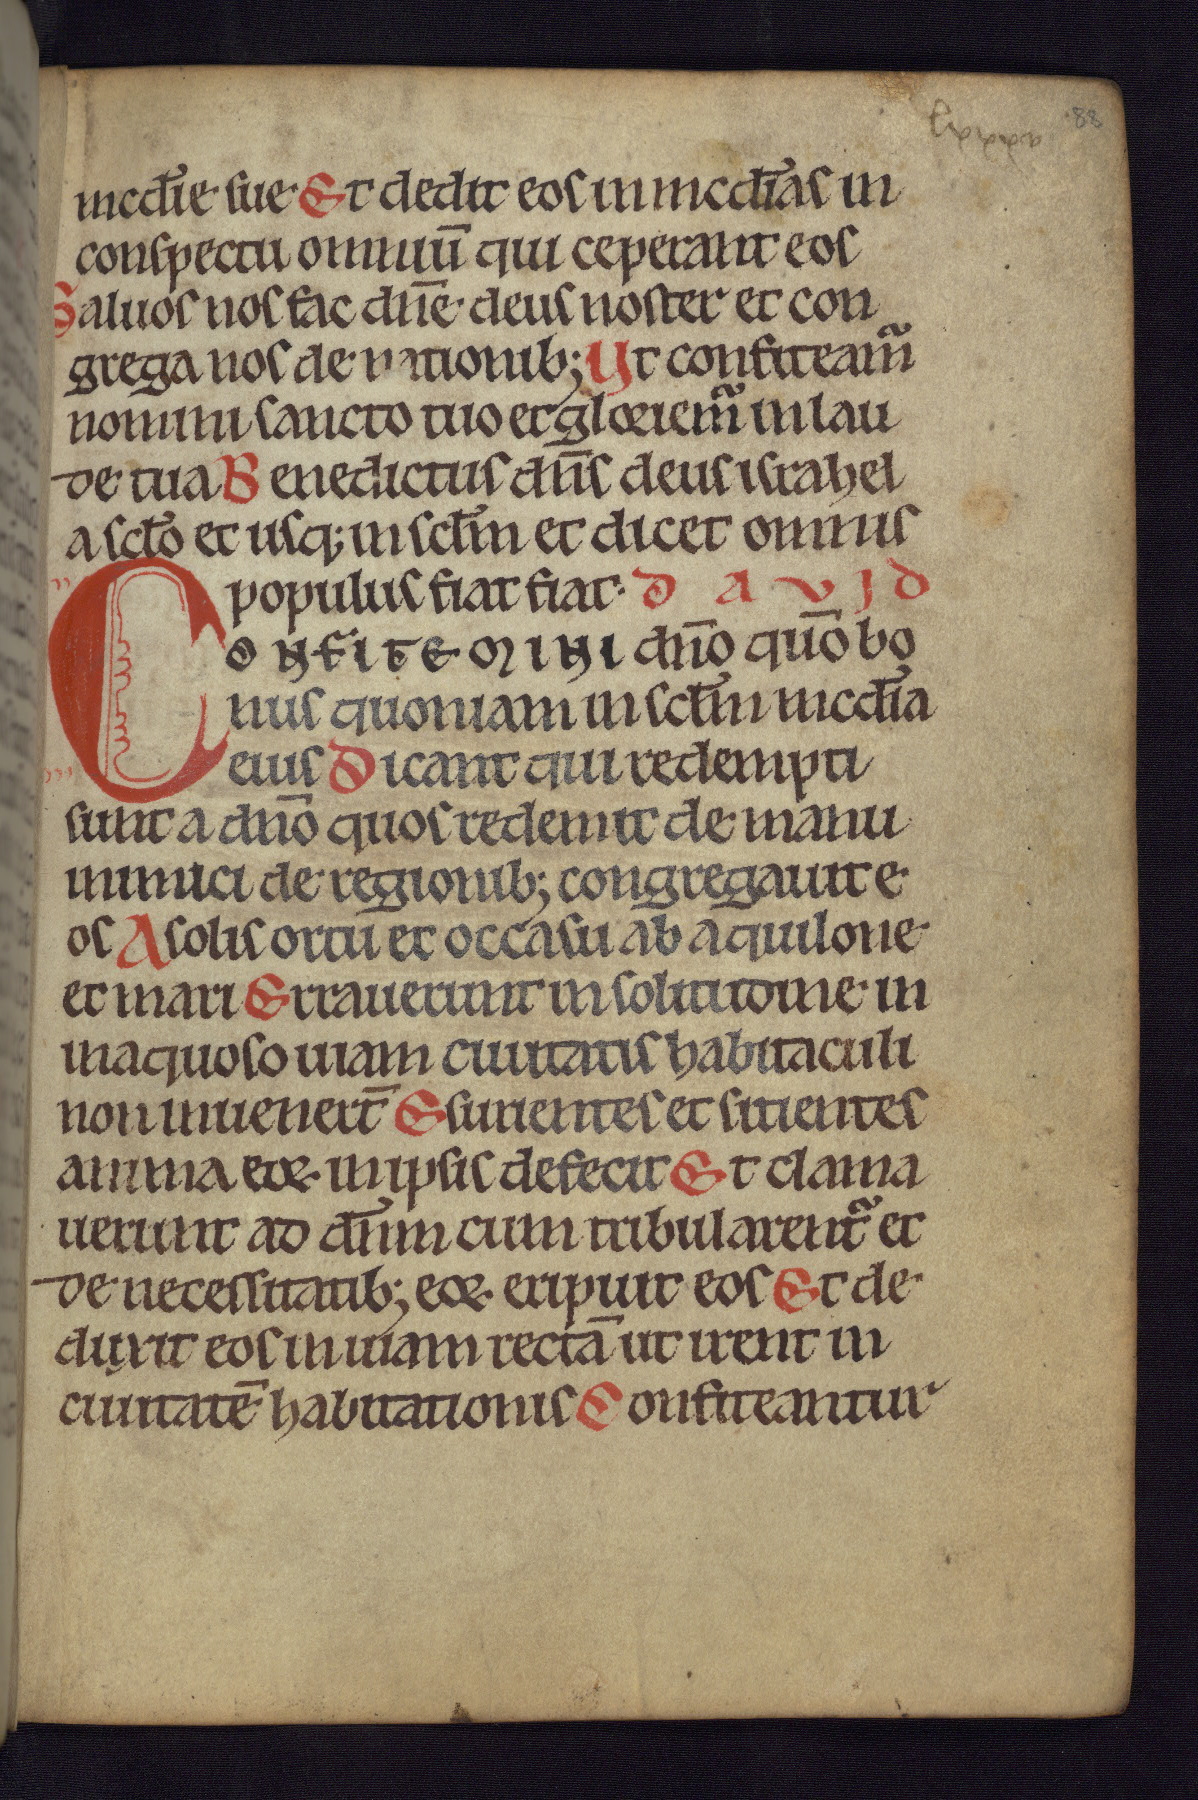 lxxxxv 88
mcd̃ie sue Et dedit eos in mcd̃ias in
conspectu omniũ qui ceperant eos
Saluos nos fac dñe deus noster et con
grega nos de nationib; Ut confiteam̃
nomini sancto tuo et gloriem̃ in lau
de tua Benedictus dñs deus israhel
a scl̃o et usq; in scl̃m et dicet omnis
populus fiat fiat DAVID
CONFITEMINI dño qũo bo
nus quoniam in scl̃m mcd̃ia
eius Dicant qui redempti
sunt a dño quos redemit de manu
inimici de regionib; congregauit e
os A solis ortu et occasu ab aquilone
et mari Errauerunt in solitudine in
inaquoso uiam ciuitatis habitaculi
non inuenert̄ Esurientes et sitientes
anima eoꝝ in ipsis defecit Et clama
uerunt ad dñm cum tribularent̃ et
de necessitatib; eoꝝ eripuit eos Et de
duxit eos in uiam rectã ut irent in
ciuitatẽ habitationis Confiteantur